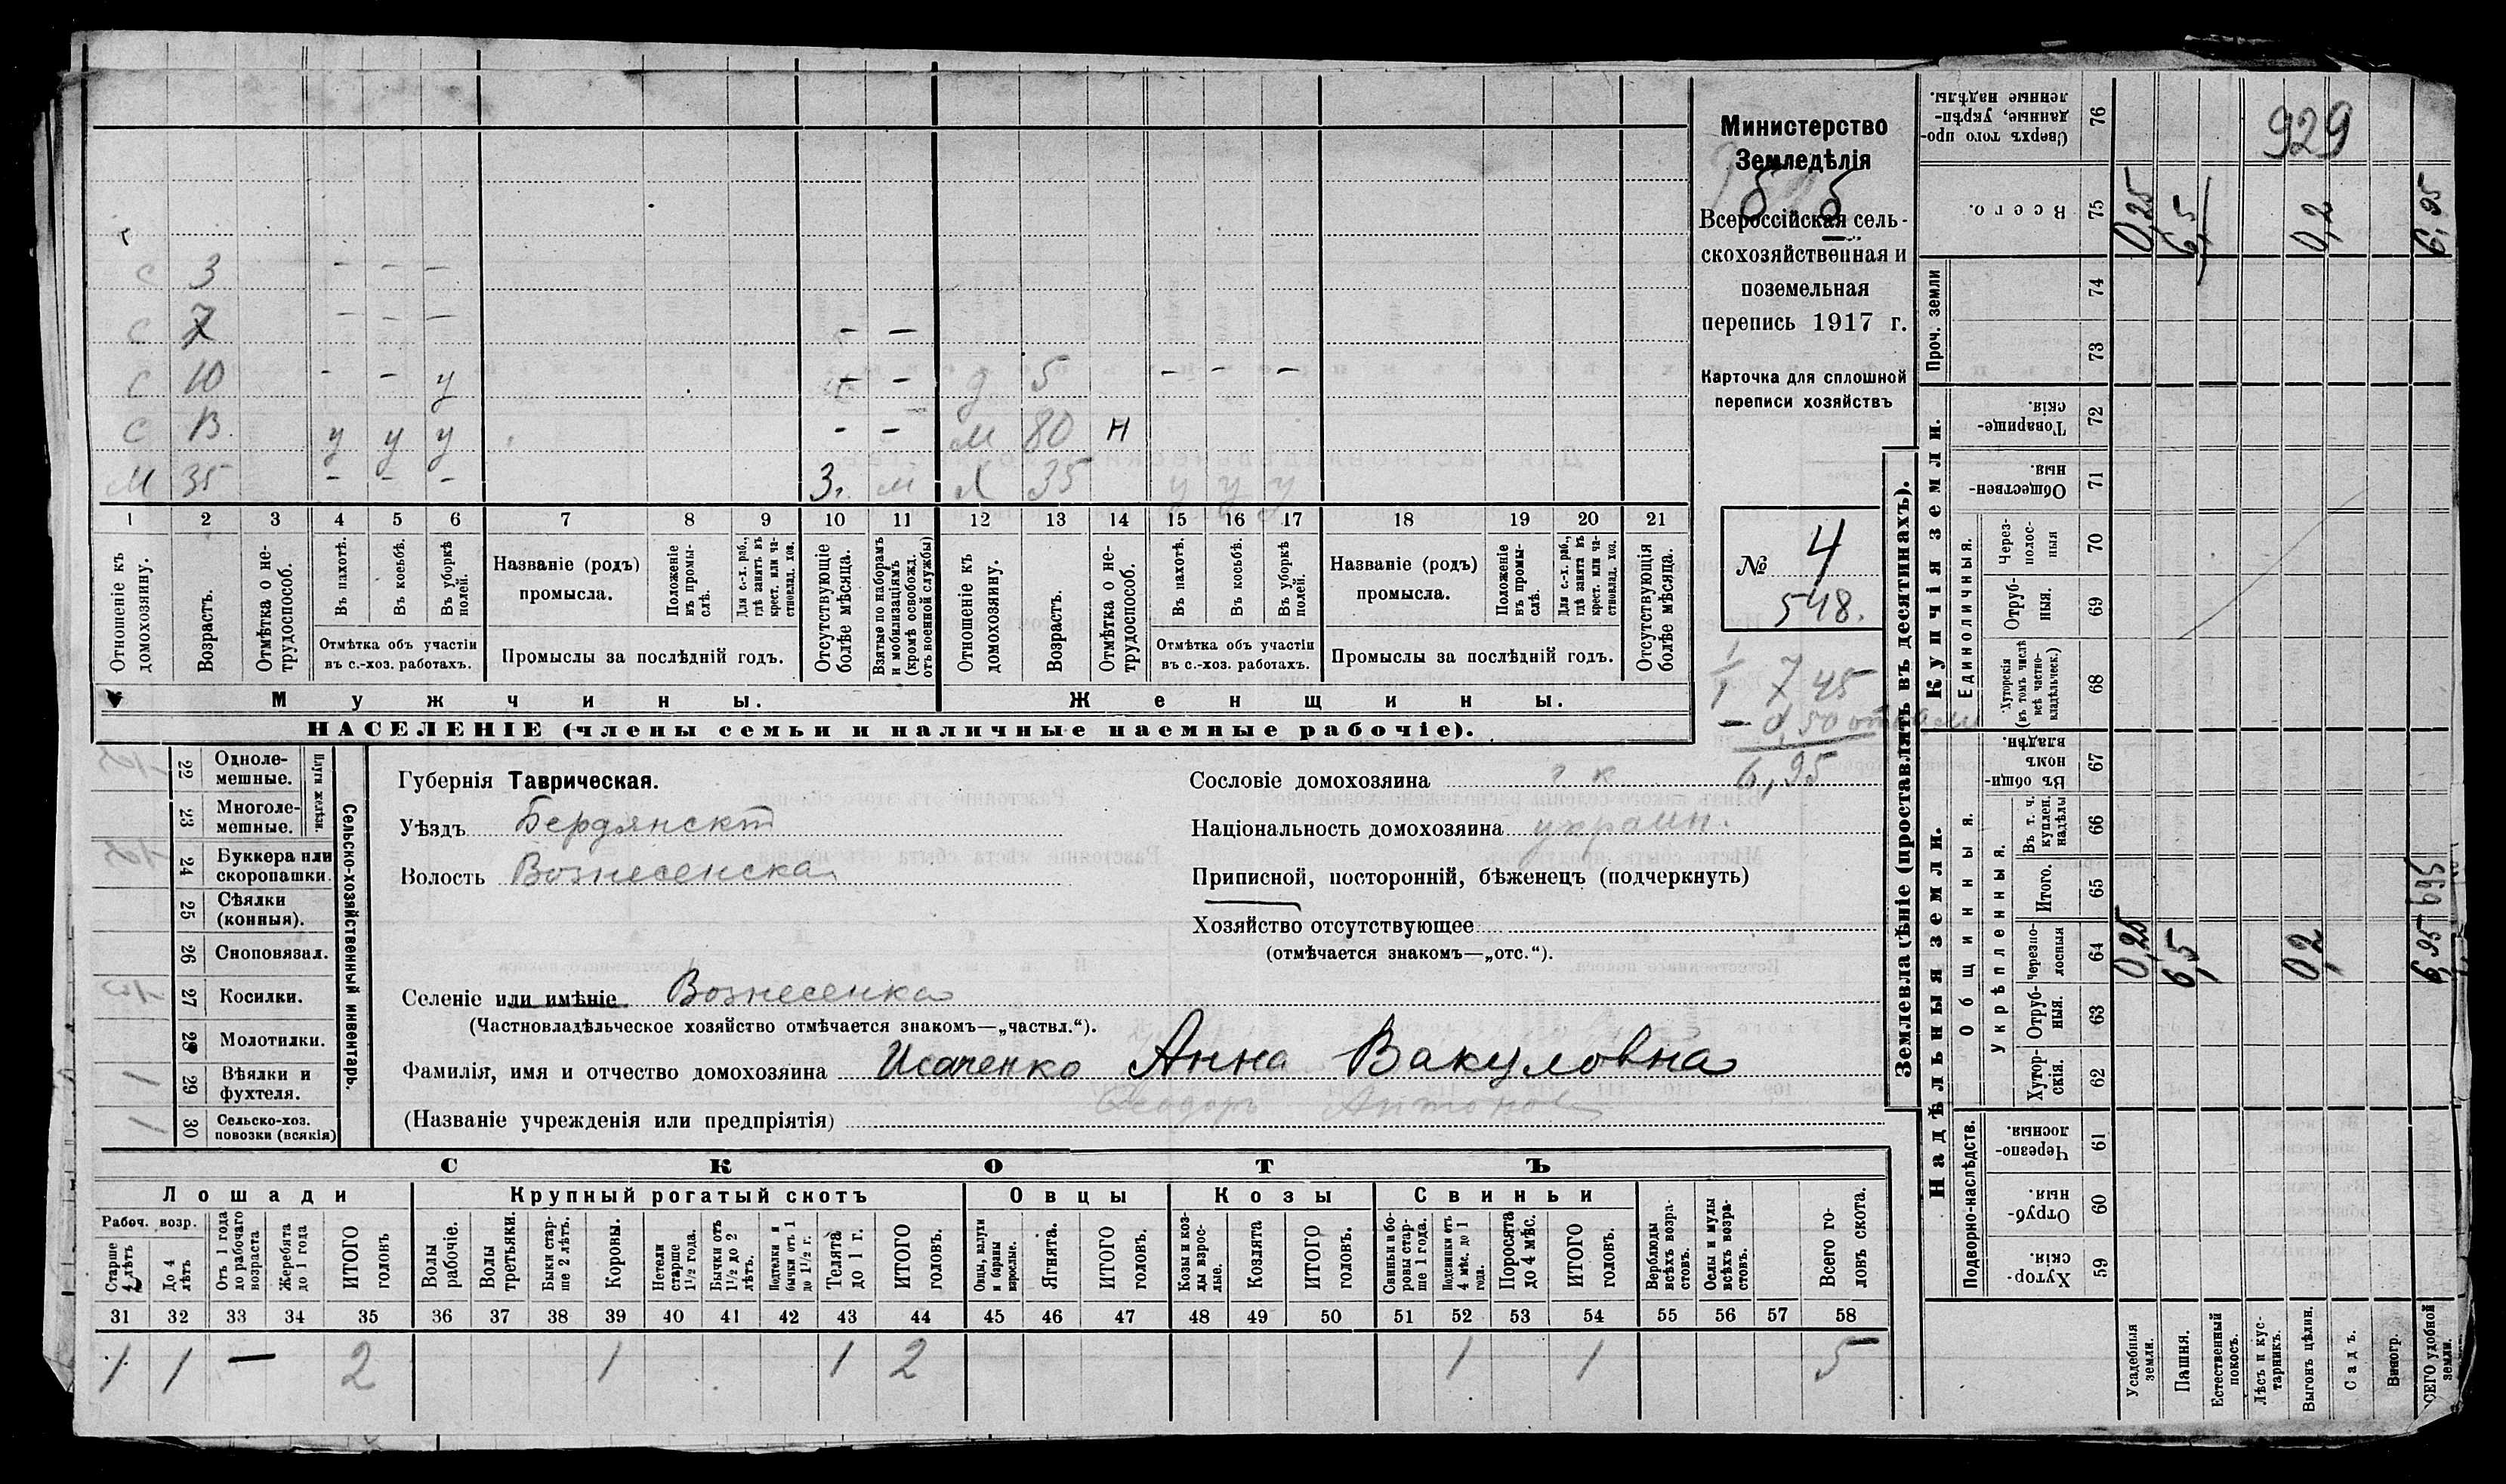 Министерство
Земледѣлія
Всероссійская сель-
скохозяйственная и
поземельная
перепись 1917 г.
Карточка для сплошной
переписи хозяйствъ
№ 4
548.
7 45
6,95
с 3 - - -
с 7 - - - - -
с 10 - - у - - д 5 - - -
с 13 у у у - - м 80 н
м 35 - - - 3. м х 35 у у у
1 2 3 4 5 6 7 8 9 10 11 12 13 14 15 16 17 18 19 20 21
Отношеніе къ домохозяину.
Возрастъ.
Отмѣтка о не-трудоспособ.
Въ пахотѣ.
Въ косьбѣ.
Въ уборкѣ полей.
Отмѣтка объ участіи
въ с.-хоз. работахъ.
Названіе (родъ)
промысла.
Положеніе въ промы-слѣ.
Для с.-х. раб., гдѣ занятъ въ крест. или ча-стновлад. хоз.
Промыслы за послѣдній годъ.
Отсутствующіе болѣе мѣсяца.
Взятые по наборамъ и мобилизаціямъ (кромѣ освобожд. отъ военной службы)
Отношеніе къ домохозяину.
Возрастъ.
Отмѣтка о не-трудоспособ.
Въ пахотѣ.
Въ косьбѣ.
Въ уборкѣ полей.
Отмѣтка объ участіи
въ с.-хоз. работахъ.
Названіе (родъ)
промысла.
Положеніе въ промы-слѣ.
Для с.-х. раб., гдѣ занята въ крест. или ча-стновлад. хоз.
Промыслы за послѣдній годъ.
Отсутствующія болѣе мѣсяца.
Мужчины.
Женщины.
НАСЕЛЕНІЕ (члены семьи и наличные наемные рабочіе).
22 Одноле-мешные.
23 Многоле-мешные.
Плуги желѣзн.
24 Буккера или скоропашки.
25 Сѣялки (конныя).
26 Сноповязал.
27 Косилки.
28 Молотилки.
1 29 Вѣялки и фухтеля.
1 30 Сельско-хоз. повозки (всякія)
Сельско-хозяйственный инвентарь.
Губернія Таврическая.
Уѣздъ Бердянскій
Волость Вознесенская
Селеніе или имѣніе Вознесенка
(Частновладѣльческое хозяйство отмѣчается знакомъ—„частвл.“).
Фамилія, имя и отчество домохозяина Исаченко Анна Вакуловна
Феодоръ Антонов
(Названіе учрежденія или предпріятія)
Сословіе домохозяина г к
Національность домохозяина украин.
Приписной, посторонній, бѣженецъ (подчеркнуть)
Хозяйство отсутствующее
(отмѣчается знакомъ—„отс.“).
СКОТЪ
Лошади
Крупный рогатый скотъ
Овцы
Козы
Свиньи
Рабоч. возр.
Старше 4 лѣтъ
До 4 лѣтъ
Отъ 1 года до рабочаго возраста
Жеребята до 1 года
ИТОГО головъ
Волы рабочіе.
Волы третьяки.
Быки стар-ше 2 лѣтъ.
Коровы.
Нетели старше 1½ года.
Бычки отъ 1½ до 2 лѣтъ.
Подтелки и бычки отъ 1 до 1½ г.
Телята до 1 г.
ИТОГО головъ.
Овцы, валухи и бараны взрослые.
Ягнята.
ИТОГО головъ.
Козы и коз-лы взрос-лые.
Козлята
ИТОГО головъ.
Свиньи и бо-ровы стар-ше 1 года.
Подсвинки отъ 4 мѣс. до 1 года.
Поросята до 4 мѣс.
ИТОГО головъ.
Верблюды всѣхъ возра-стовъ.
Ослы и мулы всѣхъ возра-стовъ.
Всего го-ловъ скота.
31 32 33 34 35 36 37 38 39 40 41 42 43 44 45 46 47 48 49 50 51 52 53 54 55 56 57 58
1 1 — 2 1 1 2 1 1 5
Землевладѣніе (проставлять въ десятинахъ).
Надѣльныя земли.
Купчія земли.
Проч. земли
Подворно-наслѣдств.
Общинныя.
Укрѣпленныя.
Единоличныя.
Сверхъ того про-данные, укрѣп-ленные надѣлы. 76
929
Всего. 75 0,25 6,5 0,2 6,95
74
73
Товарище-скія. 72
Обществен-ныя. 71
Через-полос-ныя 70
Отруб-ныя. 69
Хуторскія (въ томъ числѣ всѣ частно-владѣльческ.) 68
Въ общин-номъ владѣн. 67
Въ т. ч. куплен. надѣлы 66
Итого. 65
Черезпо-лосныя 64 0,25 6,5 0,2 6,95
Отруб-ныя. 63
Хутор-скія. 62
Черезпо-лосныя. 61
Отруб-ныя. 60
Хутор-скія. 59
Усадебныя земли.
Пашня.
Естественный покосъ.
Лѣсъ и кус-тарникъ.
Выгонъ цѣлин.
Садъ.
Виногр.
ВСЕГО удобной земли.